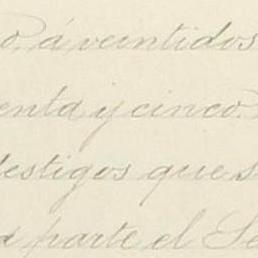 o, á veintidos
enta y cinco.
testigos que s
a parte el Se